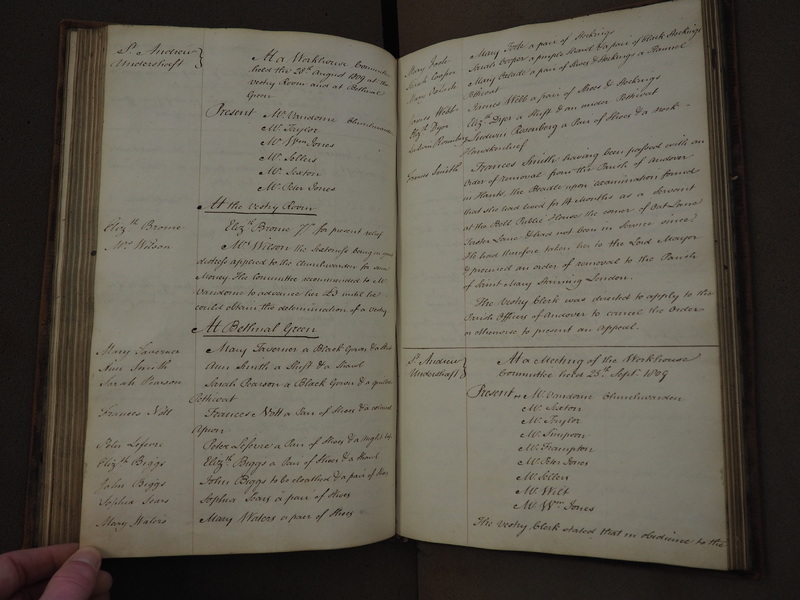 St. Andrew
Undershaft
At a Workhouse Committee
held the 28th August 1809 at the
Vestry Room and at Bethnal
Green
Present Mr. Vandome Churchwarden
Mr. Taylor
Mr. Wm. Jones
Mr. Sellers
Mr. Sexton
Mr. Peter Jones
At the Vestry Room
Elizth Brome Elizth Brome 7/ for present relief
Mrs. Wilson Mrs. Wilson the Sextoness being in great
distress applied to the Churchwarden for some
Money. The Committee recommended to Mr.
Vandome to advance her £3 until he
could obtain the determination of a Vestry
At Bethnal Green
Mary Taverner Mary Taverner a Black Gown & a
Ann Smith Ann Smith a Shift & a Shawl
Sarah Pearson Sarah Pearson a Black Gown & a
Petticoat
Frances Nott Frances Nott a Pair of Shoes & a colored
Apron
Peter Lefevre Peter Lefevre a Pair of Shoes & a night Cap
Elizth Biggs Elizth Biggs a Pair of Shoes & a Shawl
John Biggs John Biggs to be cloathed & a pair of Shoes
Sophia Sears Sophia Sears a pair of Shoes
Mary Waters Mary Waters a pair of Shoes
Mary Foote Mary Foote a pair of Stockings
Sarah Cooper Sarah Cooper a purple Shawl & a pair of Black Stockings
Mary a pair of Shoes & Stockings a Flannel
Petticoat
Agnes Webb Agnes Webb a pair of Shoes & Stockings
Elizth Dyer Elizth Dyer a Shift & an under Petticoat
Rosenburg Rosenburg a Pair of Shoes & a neck
Handkerchief
Frances Smith Frances Smith having been passed with an
Order of removal from the Parish of Andover
in Hants, the Beadle upon examination found
that she had lived for 4 Months as a Servant
at the Bell Public House the corner of Oat Lane
Foster Lane & had not been in Service since;
He had therefore taken her to the Lord Mayor
& procured an order of removal to the Parish
of Saint Mary Staining London.
The Vestry Clerk was directed to apply to the
Parish Officers of Andover to cancel the Order
or otherwise to present an Appeal.
St. Andrew
Undershaft
At a Meeting of the Workhouse
Committee held 25th Septr. 1809
Present Mr. Vandome Churchwarden
Mr. Sexton
Mr. Taylor
Mr. Simpson
Mr. Frampton
Mr. Peter Jones
Mr. Sellers
Mr. Wilt
Mr. Wm. Jones
The Vestry Clerk stated that in obedience to the